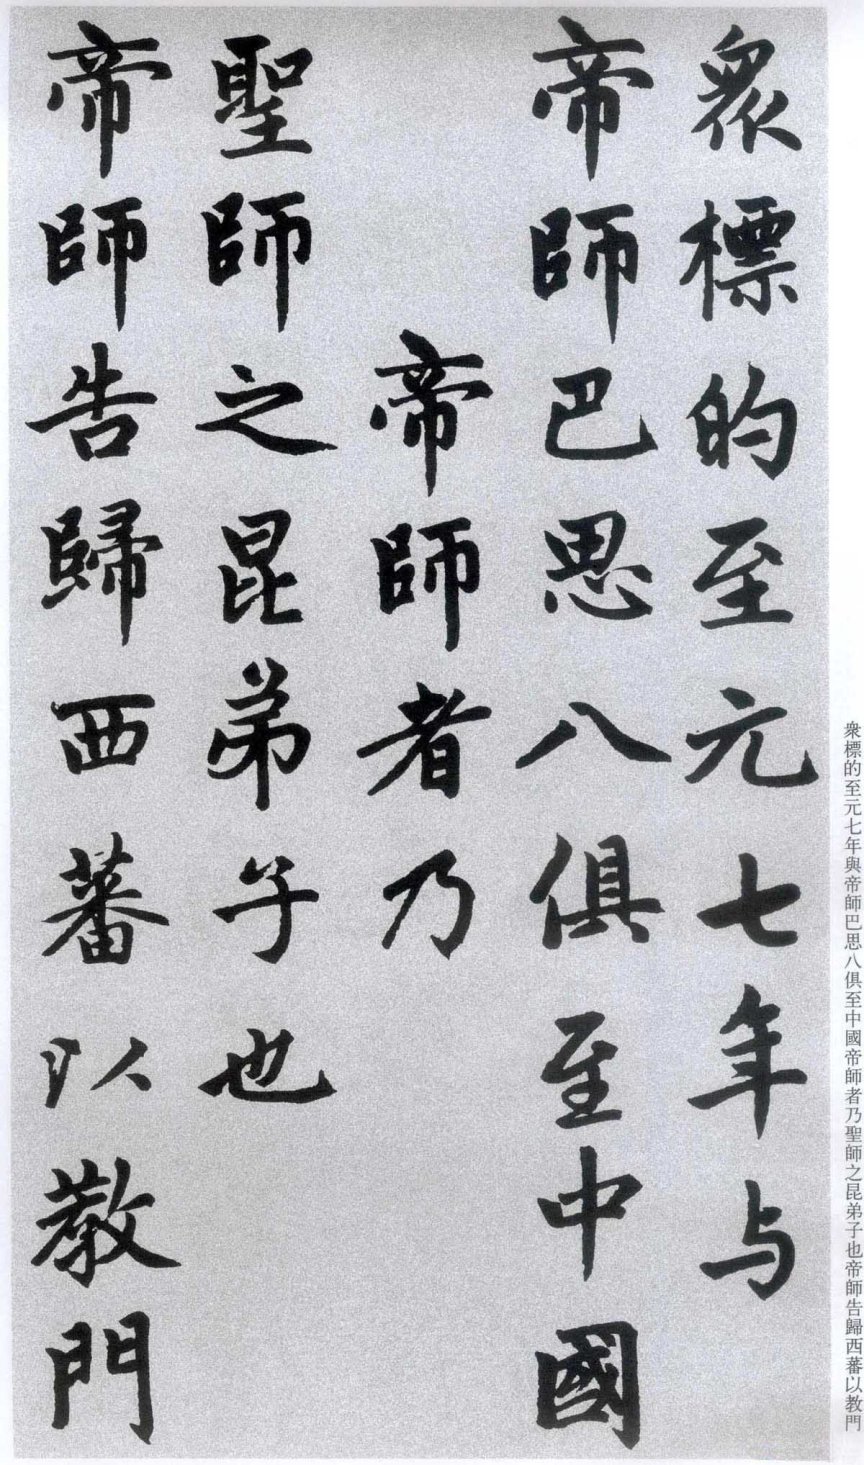 眾標的至元七年与
帝師巴思八俱至中國
帝師者乃
聖師之昆弟子也
帝師告歸西蕃以教門
衆標的至元七年與帝師巴思八俱至中國帝師者乃聖師之昆弟子也帝師告歸西蕃以教門